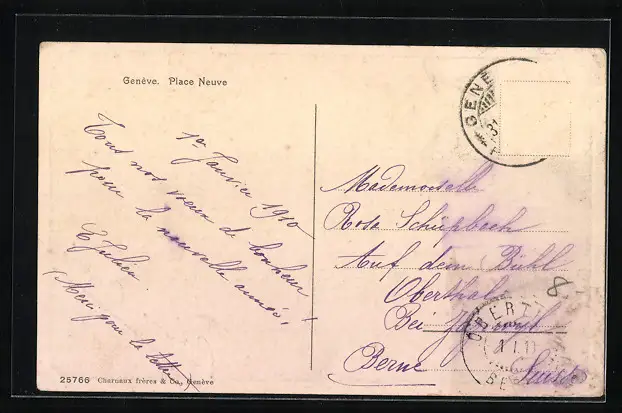 Genève. Place Neuve
1er Janvier 1910
Tous nos voeux de bonheur
pour la nouvelle année!
E Julien
Merci pour la lettre
25766 Charnaux frères & Co, Genève
GENE
Mademoiselle
Rosa Schüpbach
Auf dem Bühl
Oberthal
Bei
Berne Suisse
OBERT